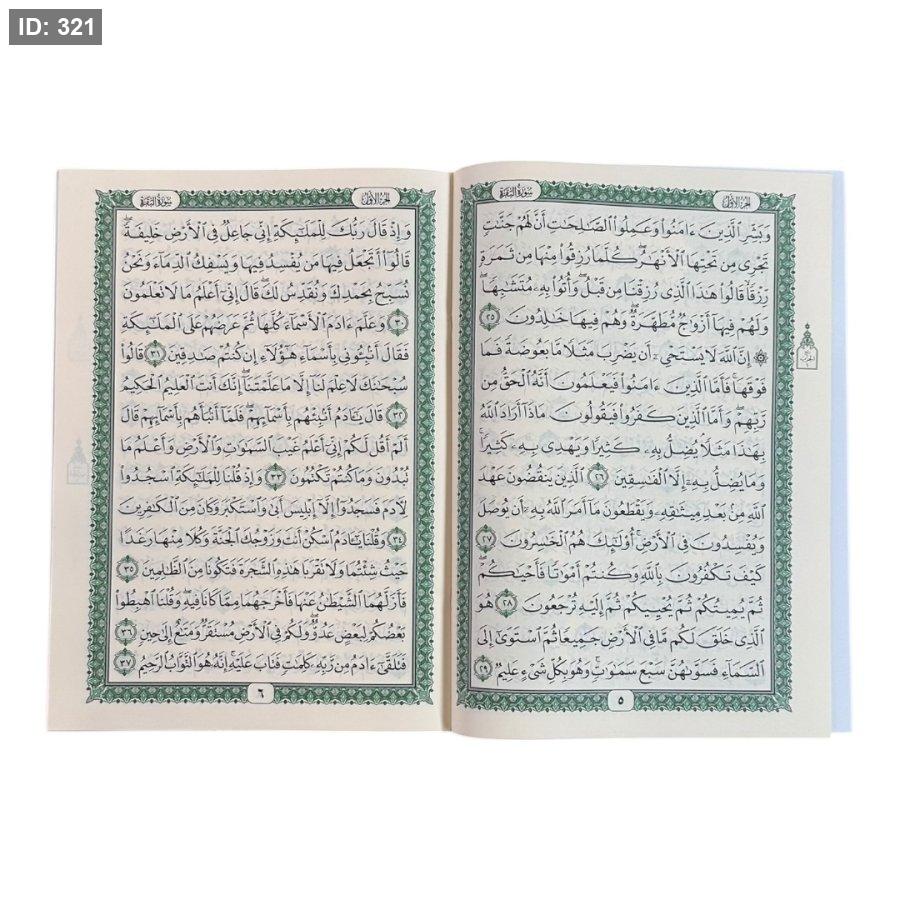 ID: 321
سورة البقرة
الجزء الأول
وَبَشِّرِ ٱلَّذِينَ ءَامَنُوا۟ وَعَمِلُوا۟ ٱلصَّٰلِحَٰتِ أَنَّ لَهُمْ جَنَّٰتٍ
تَجْرِى مِن تَحْتِهَا ٱلْأَنْهَٰرُ ۖ كُلَّمَا رُزِقُوا۟ مِنْهَا مِن ثَمَرَةٍ
رِّزْقًا ۙ قَالُوا۟ هَٰذَا ٱلَّذِى رُزِقْنَا مِن قَبْلُ ۖ وَأُتُوا۟ بِهِۦ مُتَشَٰبِهًا ۖ
وَلَهُمْ فِيهَآ أَزْوَٰجٌ مُّطَهَّرَةٌ ۖ وَهُمْ فِيهَا خَٰلِدُونَ ٢٥
۞ إِنَّ ٱللَّهَ لَا يَسْتَحْىِۦٓ أَن يَضْرِبَ مَثَلًا مَّا بَعُوضَةً فَمَا
فَوْقَهَا ۚ فَأَمَّا ٱلَّذِينَ ءَامَنُوا۟ فَيَعْلَمُونَ أَنَّهُ ٱلْحَقُّ مِن
رَّبِّهِمْ ۖ وَأَمَّا ٱلَّذِينَ كَفَرُوا۟ فَيَقُولُونَ مَاذَآ أَرَادَ ٱللَّهُ
بِهَٰذَا مَثَلًا ۘ يُضِلُّ بِهِۦ كَثِيرًا وَيَهْدِى بِهِۦ كَثِيرًا ۚ
وَمَا يُضِلُّ بِهِۦٓ إِلَّا ٱلْفَٰسِقِينَ ٢٦ ٱلَّذِينَ يَنقُضُونَ عَهْدَ
ٱللَّهِ مِنۢ بَعْدِ مِيثَٰقِهِۦ وَيَقْطَعُونَ مَآ أَمَرَ ٱللَّهُ بِهِۦٓ أَن يُوصَلَ
وَيُفْسِدُونَ فِى ٱلْأَرْضِ ۚ أُو۟لَٰٓئِكَ هُمُ ٱلْخَٰسِرُونَ ٢٧
كَيْفَ تَكْفُرُونَ بِٱللَّهِ وَكُنتُمْ أَمْوَٰتًا فَأَحْيَٰكُمْ ۖ
ثُمَّ يُمِيتُكُمْ ثُمَّ يُحْيِيكُمْ ثُمَّ إِلَيْهِ تُرْجَعُونَ ٢٨ هُوَ
ٱلَّذِى خَلَقَ لَكُم مَّا فِى ٱلْأَرْضِ جَمِيعًا ثُمَّ ٱسْتَوَىٰٓ إِلَى
ٱلسَّمَآءِ فَسَوَّىٰهُنَّ سَبْعَ سَمَٰوَٰتٍ ۚ وَهُوَ بِكُلِّ شَىْءٍ عَلِيمٌ ٢٩
٥
سورة البقرة
الجزء الأول
وَإِذْ قَالَ رَبُّكَ لِلْمَلَٰٓئِكَةِ إِنِّى جَاعِلٌ فِى ٱلْأَرْضِ خَلِيفَةً ۖ
قَالُوٓا۟ أَتَجْعَلُ فِيهَا مَن يُفْسِدُ فِيهَا وَيَسْفِكُ ٱلدِّمَآءَ وَنَحْنُ
نُسَبِّحُ بِحَمْدِكَ وَنُقَدِّسُ لَكَ ۖ قَالَ إِنِّىٓ أَعْلَمُ مَا لَا تَعْلَمُونَ
٣٠ وَعَلَّمَ ءَادَمَ ٱلْأَسْمَآءَ كُلَّهَا ثُمَّ عَرَضَهُمْ عَلَى ٱلْمَلَٰٓئِكَةِ
فَقَالَ أَنۢبِـُٔونِى بِأَسْمَآءِ هَٰٓؤُلَآءِ إِن كُنتُمْ صَٰدِقِينَ ٣١ قَالُوا۟
سُبْحَٰنَكَ لَا عِلْمَ لَنَآ إِلَّا مَا عَلَّمْتَنَآ ۖ إِنَّكَ أَنتَ ٱلْعَلِيمُ ٱلْحَكِيمُ
٣٢ قَالَ يَٰٓـَٔادَمُ أَنۢبِئْهُم بِأَسْمَآئِهِمْ ۖ فَلَمَّآ أَنۢبَأَهُم بِأَسْمَآئِهِمْ قَالَ
أَلَمْ أَقُل لَّكُمْ إِنِّىٓ أَعْلَمُ غَيْبَ ٱلسَّمَٰوَٰتِ وَٱلْأَرْضِ وَأَعْلَمُ مَا
تُبْدُونَ وَمَا كُنتُمْ تَكْتُمُونَ ٣٣ وَإِذْ قُلْنَا لِلْمَلَٰٓئِكَةِ ٱسْجُدُوا۟
لِـَٔادَمَ فَسَجَدُوٓا۟ إِلَّآ إِبْلِيسَ أَبَىٰ وَٱسْتَكْبَرَ وَكَانَ مِنَ ٱلْكَٰفِرِينَ
٣٤ وَقُلْنَا يَٰٓـَٔادَمُ ٱسْكُنْ أَنتَ وَزَوْجُكَ ٱلْجَنَّةَ وَكُلَا مِنْهَا رَغَدًا
حَيْثُ شِئْتُمَا وَلَا تَقْرَبَا هَٰذِهِ ٱلشَّجَرَةَ فَتَكُونَا مِنَ ٱلظَّٰلِمِينَ ٣٥
فَأَزَلَّهُمَا ٱلشَّيْطَٰنُ عَنْهَا فَأَخْرَجَهُمَا مِمَّا كَانَا فِيهِ ۖ وَقُلْنَا ٱهْبِطُوا۟
بَعْضُكُمْ لِبَعْضٍ عَدُوٌّ ۖ وَلَكُمْ فِى ٱلْأَرْضِ مُسْتَقَرٌّ وَمَتَٰعٌ إِلَىٰ حِينٍ ٣٦
فَتَلَقَّىٰٓ ءَادَمُ مِن رَّبِّهِۦ كَلِمَٰتٍ فَتَابَ عَلَيْهِ ۚ إِنَّهُۥ هُوَ ٱلتَّوَّابُ ٱلرَّحِيمُ ٣٧
٦